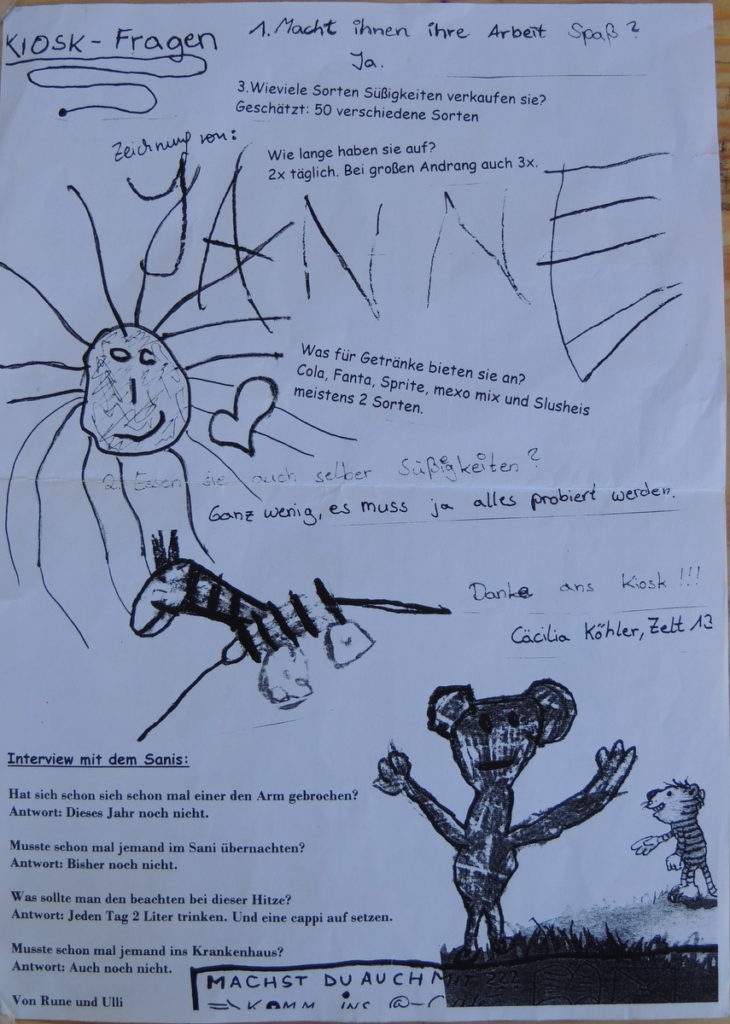 KIOSK - Fragen
1. Macht ihnen ihre Arbeit Spaß?
Ja.
3.Wieviele Sorten Süßigkeiten verkaufen sie?
Geschätzt: 50 verschiedene Sorten
Zeichnung von:
JANNE
Wie lange haben sie auf?
2x täglich. Bei großen Andrang auch 3x.
Was für Getränke bieten sie an?
Cola, Fanta, Sprite, mexo mix und Slusheis
meistens 2 Sorten.
2. Essen sie auch selber Süßigkeiten?
Ganz wenig, es muss ja alles probiert werden.
Danke ans Kiosk!!!
Cäcilia Köhler, Zelt 13
Interview mit dem Sanis:
Hat sich schon sich schon mal einer den Arm gebrochen?
Antwort: Dieses Jahr noch nicht.
Musste schon mal jemand im Sani übernachten?
Antwort: Bisher noch nicht.
Was sollte man den beachten bei dieser Hitze?
Antwort: Jeden Tag 2 Liter trinken. Und eine cappi auf setzen.
Musste schon mal jemand ins Krankenhaus?
Antwort: Auch noch nicht.
Von Rune und Ulli
MACHST DU AUCH MIT ???
=> KOMM INS